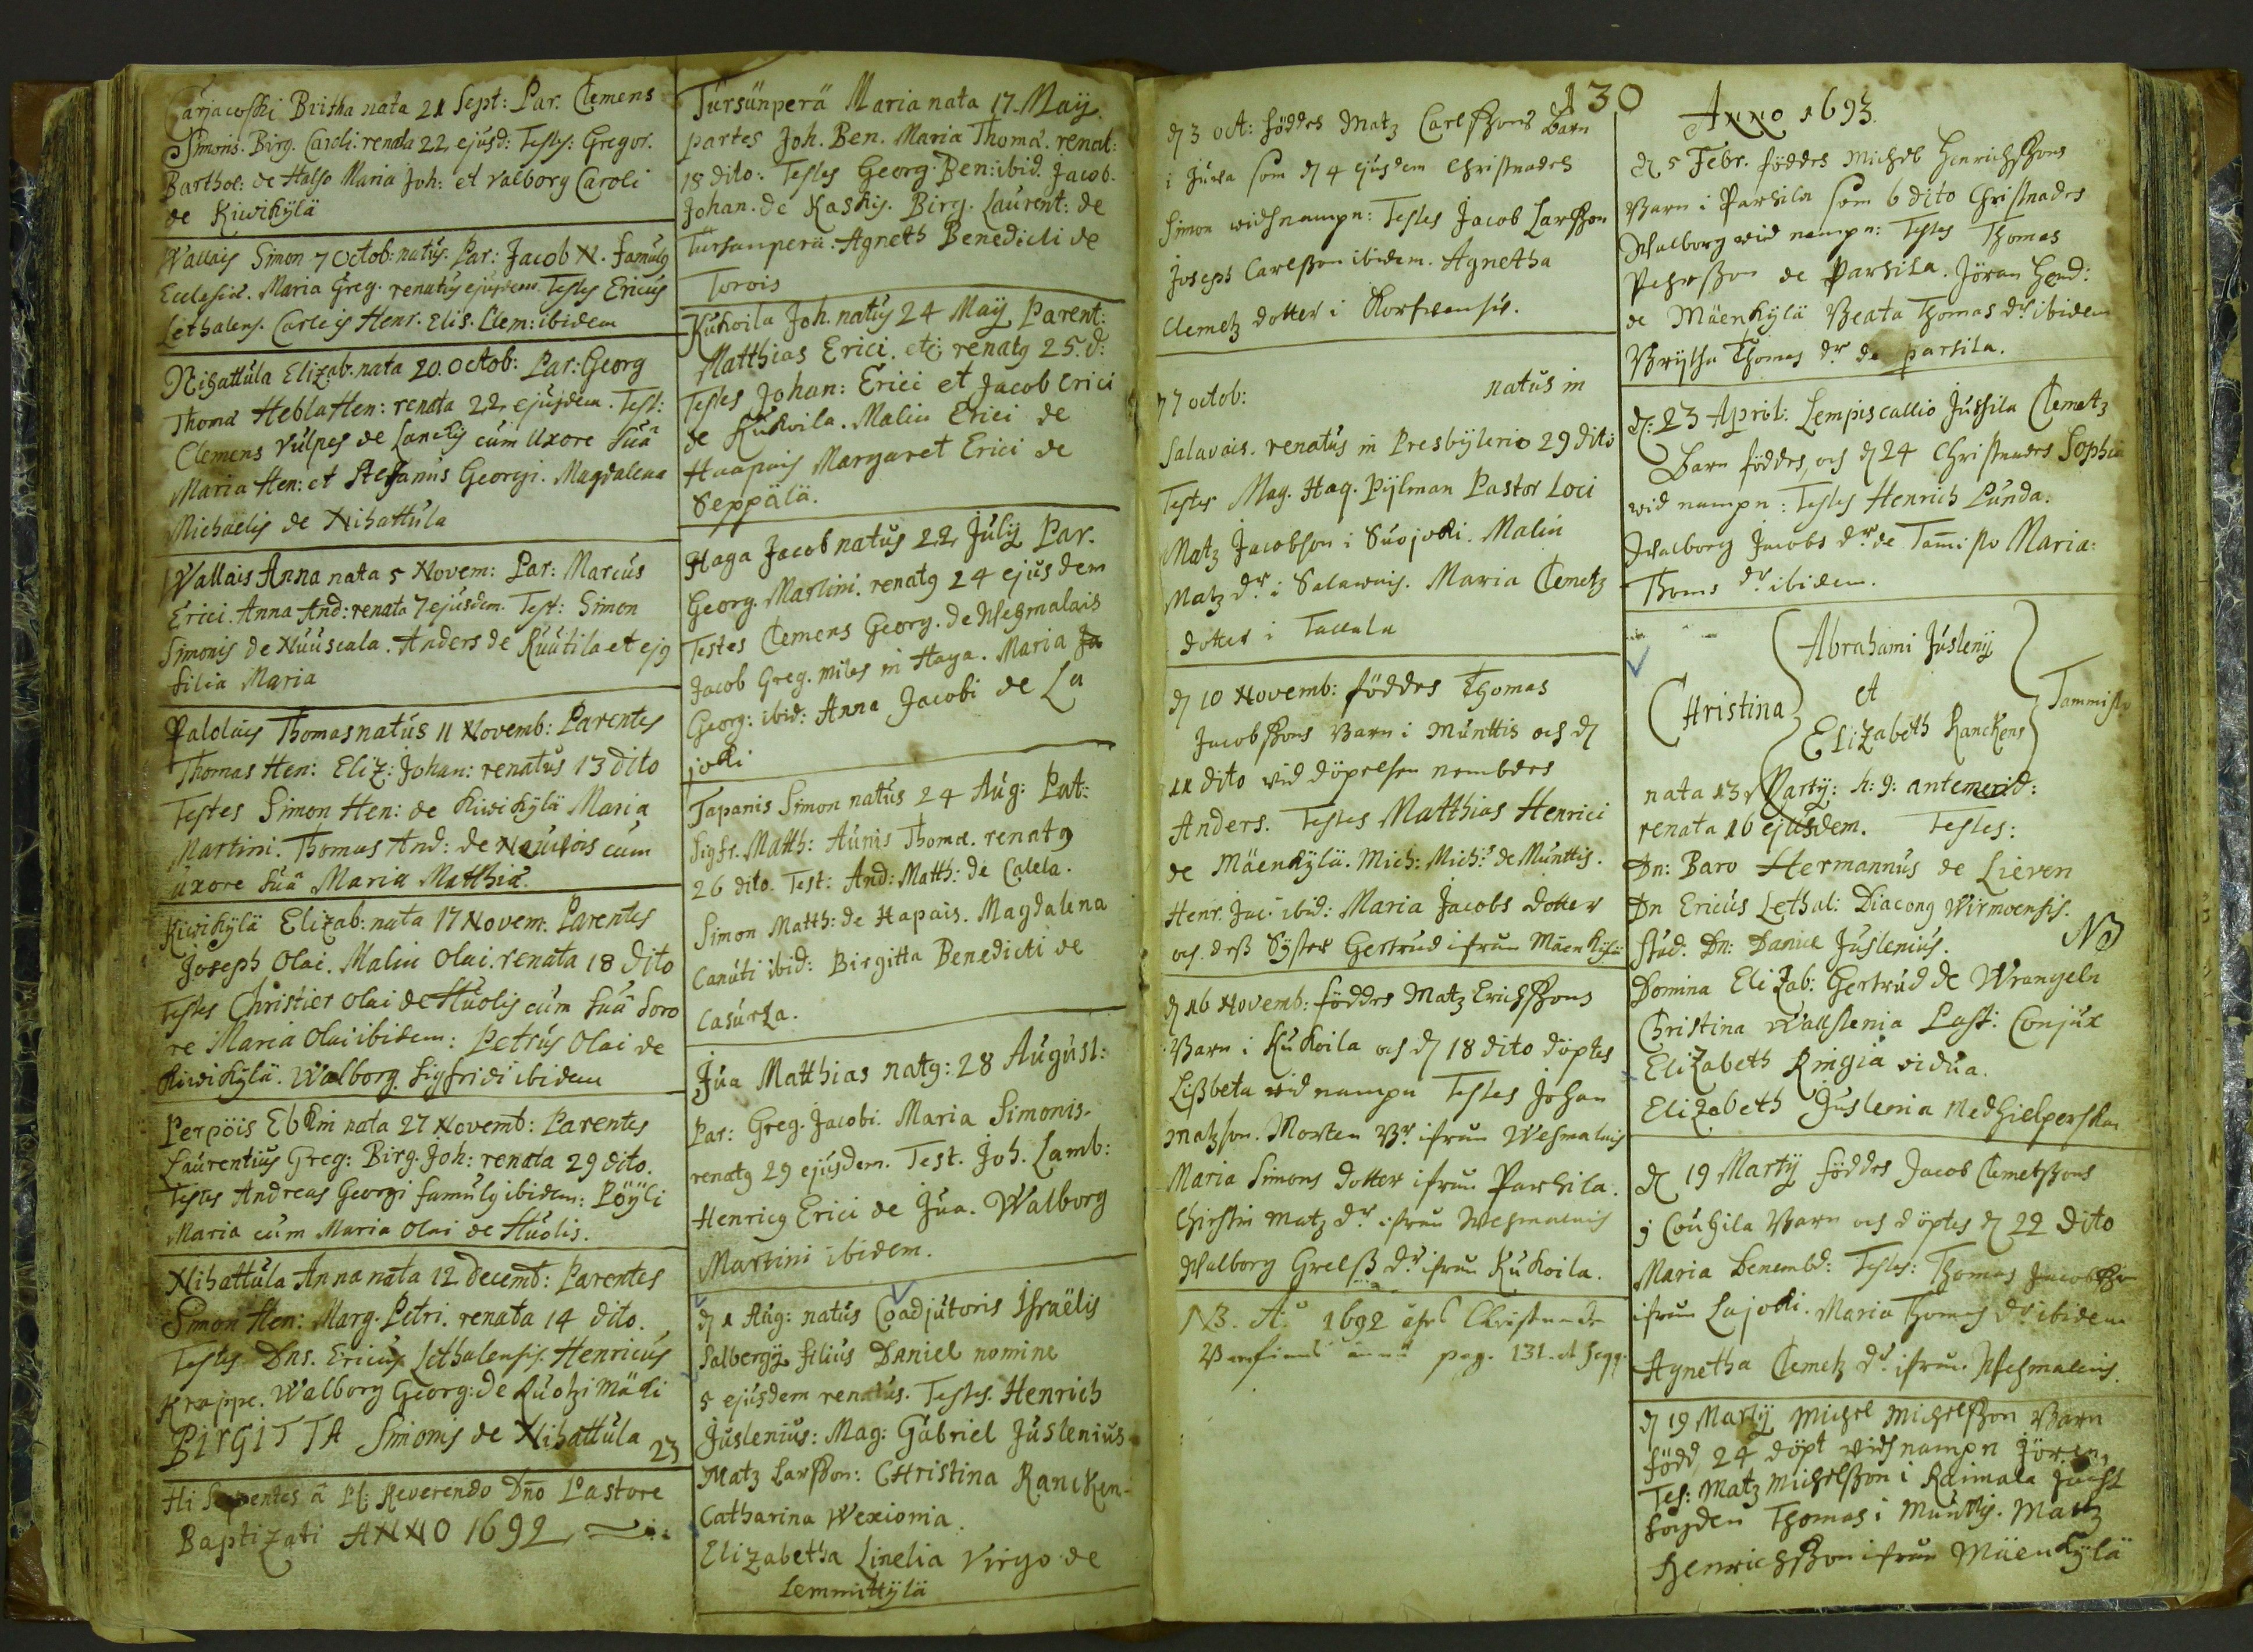 Carjacoski Britha nata 21 Sept: Par. Clemens
Simonis. Birg. Caroli. renata 22 ejusd: Testes: Gregor.
Barthol: de Halso Maria Joh: et Valborg Caroli
de Kiwikylä
Wallais Simon 7 Octob: natus. Par: Jacob N. famulg
Ecclesiæ. Maria Greg. renatus ejusdem. Testes Ericus
Lethalens. Carleis Henr. Elis. Clem: ibidem
Nihattula Elizab. nata 20. Octob: Par: Georg
Thomæ Hebla Hen: renata 22 ejusdem. Test:
Clemens Vulpes de Lancky cum Uxore sua
Maria Hen: et Stephanus Georgi. Magdalena
Michaelis de Nihattula
Wallais Anna nata 5 Novem: Par: Marcus
Erici. Anna And: renata 7 ejusdem. Test: Simon
Simonis de Nuuscala. Anders de Kuutila et ejg
filia Maria
Palolais Thomas natus 11 Novemb: Parentes
Thomas Hen: Eliz: Johan: renatus 13 dito
Testes Simon Hen: de Kiwikylä Maria
Martini. Thomas And: de cum
uxore sua Maria Matthiæ.
Kiwikylä Elizab: nata 17 Novem. Parentes
Joseph Olai. Malin Olai. renata 18 dito
Testes Christier Olai de Huolis cum sua soro
re Maria Olai ibidem: Petrus Olai de
Kiwikylä. Walborg Sigfridi ibidem
Perpöis Ebkin nata 27 Novemb: Parentes
Laurentius Greg: Birg. Joh: renata 29 dito.
Testes Andreas Georgi famulg ibidem: Pöyli
Maria cum Maria Olai de Huolis.
Nihattula Anna nata 12 Decemb: Parentes
Simon Hen: Marg. Petri. renata 14 dito.
Testes Dns. Ericus Lethalensis. Henricus
Krappe. Walborg Georg: de Kuotzi Mäki
BIRGITTA Simonis de Nihattula 23
Hi Seqventes a Pl: Reverendo Dno Pastore
Baptizati ANNO 1692
Tursunperä Maria nata 17. Maij
partes Joh. Ben. Maria Thomæ. renat:
18 dito: Testes Georg. Ben: ibid. Jacob.
Johan. de Kaskis. Birg. Laurent: de
Tursunperä. Agneth Benedicti de
Torois
Kukoila Joh. natus 24 May Parent:
Matthias Erici. etc; renatg 25. d:
Testes Johan: Erici et Jacob Erici
de Kukoila. Malin Erici de
Haapais Margaret Erici de
Seppälä.
Haga Jacob natus 22 July Par.
Georg. Martini. renatg 24 ejusdem
Testes Clemens Georg. de Wehmalais
Jacob Greg. miles in Haga. Maria Ja
Georg: ibid: Anna Jacobi de La
joki
Tapanis Simon natus 24 Aug: Pat:
Sigfr. Matth: Aunis Thomæ. renatg
26 dito. Test: And: Matth: de Calela.
Simon Matth: de Hapais. Magdalena
Canuti ibid: Birgitta Benedicti de
Casurla.
Jua Matthias natg: 28 August:
Par: Greg. Jacobi. Maria Simonis.
renatg 29 ejusdem. Test. Joh. Lamb:
Henricg Erici de Jua. Walborg
Martini ibidem.
d 1 Aug: natus Coadjutoris Israëlis
Salbergij filius Daniel nomine
5 ejusdem renatus. Testes. Henrich
Juslenius: Mag: Gabriel Juslenius
Matz Larsson: Christina Rancken
Catharina Wexionia
Elizabetha Linelia Virgo de
Lemmittylä
130
d 3 oct: föddes Matz Carlssons Barn
i Jursa som d 4 ejusdem christnades
Simon widh nampn: Testes Jacob Larsson
Joseps Carlsson ibidem. Agnetha
Clemetz dotter i
7 octob: natus in
Salavais. renatus in Presbyterio 29 dito
Testes Mag. Haq. Pylman Pastor Loci
Matz Jacobson i Suojoki. Malin
Matz dr i Salawais. Maria Clemetz
dotter i Tallala
d 10 Novemb: föddes Thomas
Jacobssons Barn i Munttis och d
11 dito vid döpelsen nembdes
Anders. Testes Matthias Henrici
de Mäenkylä. Mich: Mich: de Munttis.
Henr. Jac: ibid: Maria Jacobs dotter
och dess Syster Gertrud ifrån Mäenkylä
d 16 Novemb: föddes Matz Erichssons
Barn i Kukoila och d 18 dito döptes
Lissbeta wid nampn Testes Johan
Matzson. Morten ifrån Wehmalais
Maria Simons dotter ifrån Parsila.
Chirstin Matz dr ifrån Wehmalais
Walborg Grelss dr ifrån Kukoila.
NB. Ao 1692 Christnade
pag. 131. et seqq.
Anno 1693.
d 5 Febr. föddes Michel Henrichssons
Barn i Parsila som 6 dito Christnades
Walborg wid nampn: Testes Thomas
Pehrsson de Parsila. Jöran Hend:
de Mäenkylä Beata Thomas dr ibidem
Brytha Thomas dr de parsila.
d: 23 April: Lempiscallio Jussila Clemetz
Barn föddes, och d 24 Christnades Sophia
wid nampn: Testes Henrich Lunda.
Walborg Jacobs dr de Tammisto Maria:
Thoms dr ibidem.
Abrahami Juslenij
Christina et Tammisto
Elizabeth Ranckens
nata 13 Martij: h: 9: antemerid:
renata 16 ejusdem. Testes:
Dn: Baro Hermannus de Lieven
Dn Ericus Lethal: Diacong Wirmoensis.
Stud. Dn: Daniel Juslenius. NB
Domina Elizab: Gertrud de Wrangeln
Christina Wallstenia Past: Conjux
Elizabeth Ringia vidua.
Elizabeth Juslenia Medhielperskan
d 19 Martij föddes Jacob Clemetssons
i Couhila Barn och döptes d 22 dito
Maria benembd: Testes: Thomas Jacobsson
ifrån Lajoki. Maria Thomas dr ibidem
Agnetha Clemetz dr ifrån Wehmalais.
d 19 Martij Michel Michelsson Barn
född, 24 döpt widh nampn Jören,
Tes: Matz Michelsson i Raimala
Thomas i Munttis. Matz
Henrichsson ifrån Mäenkylä